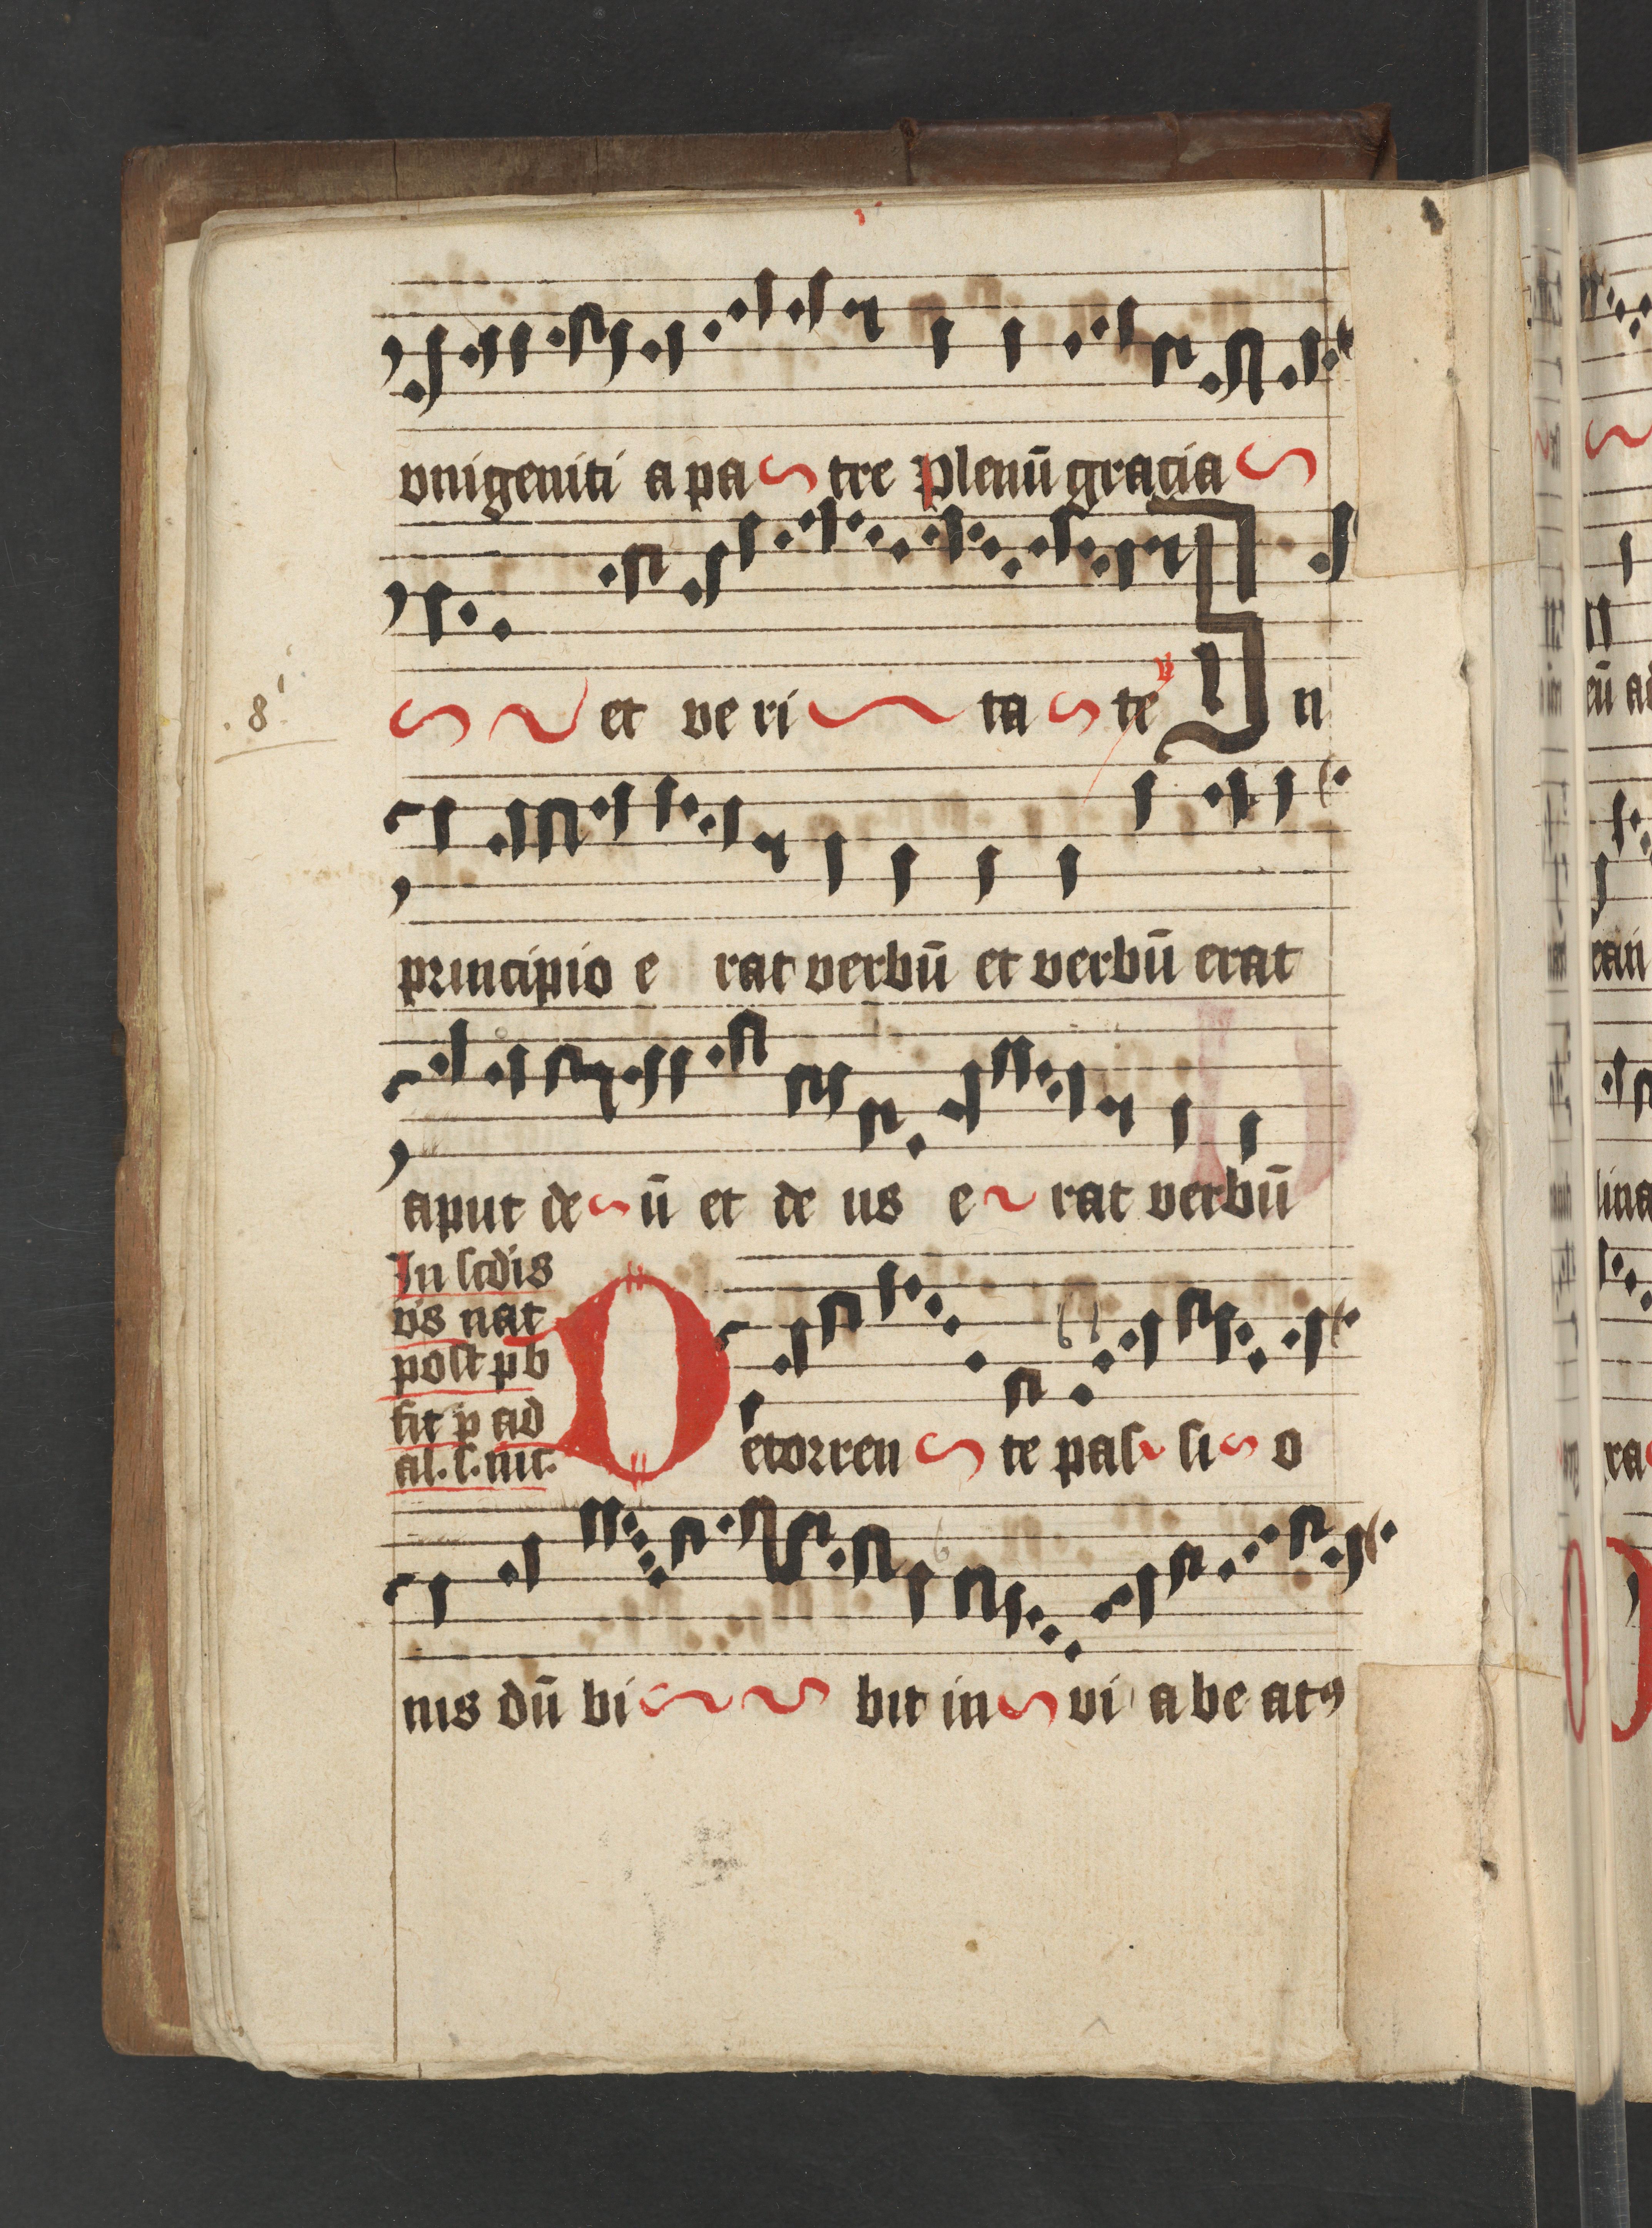 vnigeniti a pa tre plenū gracia
et ve ri ta te In
8
principio e rat verbū et verbū erat
aput de ū et de us e rat verbū
In scdis
vīs nat
post pb
fit p ad
al. s. nic.
De torren te pas si o
nis dū bi bit in vi a be atꝯ